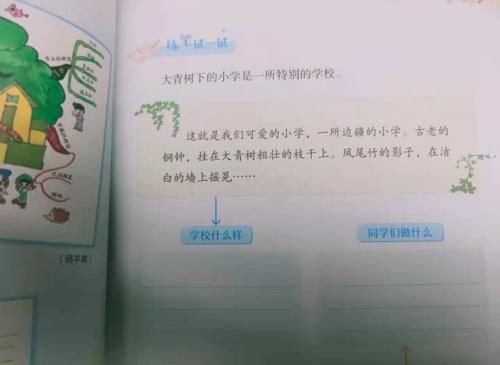 练笔试一试
大青树下的小学是一所特别的学校。
这就是我们可爱的小学，一所边疆的小学。古老的
铜钟，挂在大青树粗壮的枝干上。凤尾竹的影子，在洁
白的墙上摇晃……
学校什么样
同学们做什么